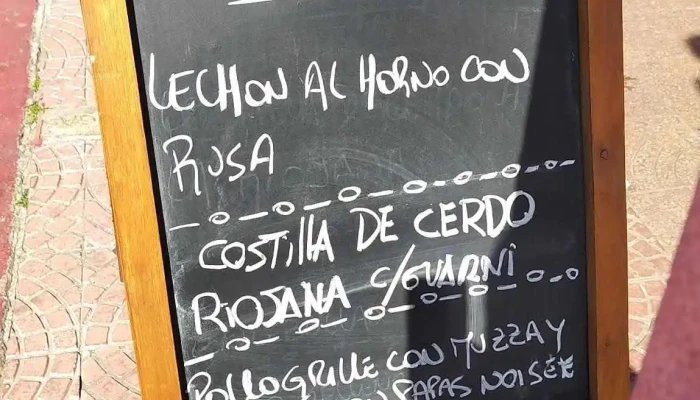 LECHON AL HORNO CON
RUSA
COSTILLA DE CERDO
RIOJANA C/GUARNI
POLLO GRILLE CON MUZZA Y
PAPAS NOISE